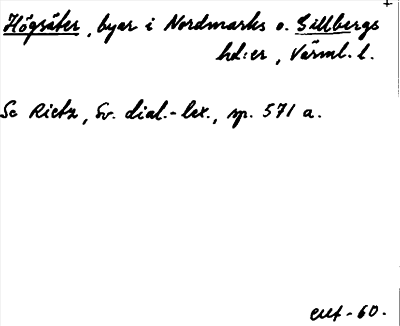 Högsäter, byar i Nordmarks o. Gillbergs
hd:er, Värml. l.
Se Rietz, Sv. dial.-lex., sp. 571 a.
-60.